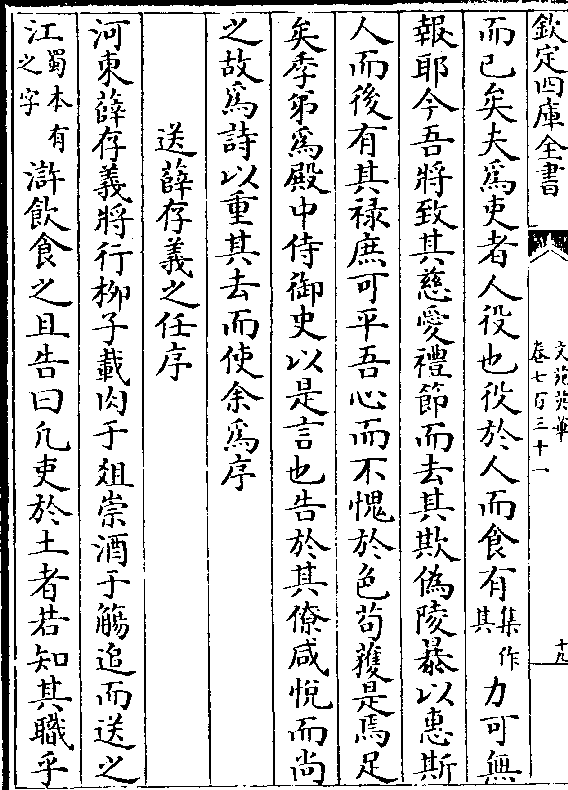 欽定四庫全書
文苑英華
卷七百三十一
十九
而已矣夫爲吏者人役也役於人而食有集作其力可無
報耶今吾將致其慈愛禮節而去其欺偽陵暴以惠斯
人而後有其祿庶可平吾心而不愧於色苟獲是焉足
矣季弟爲殿中侍御史以是言也告於其僚咸悅而尚
之故爲詩以重其去而使余爲序
送薛存義之任序
河東薛存義將行柳子載肉于俎崇酒于觴追而送之
江蜀本有之字滸飲食之且告曰凡吏於土者若知其職乎